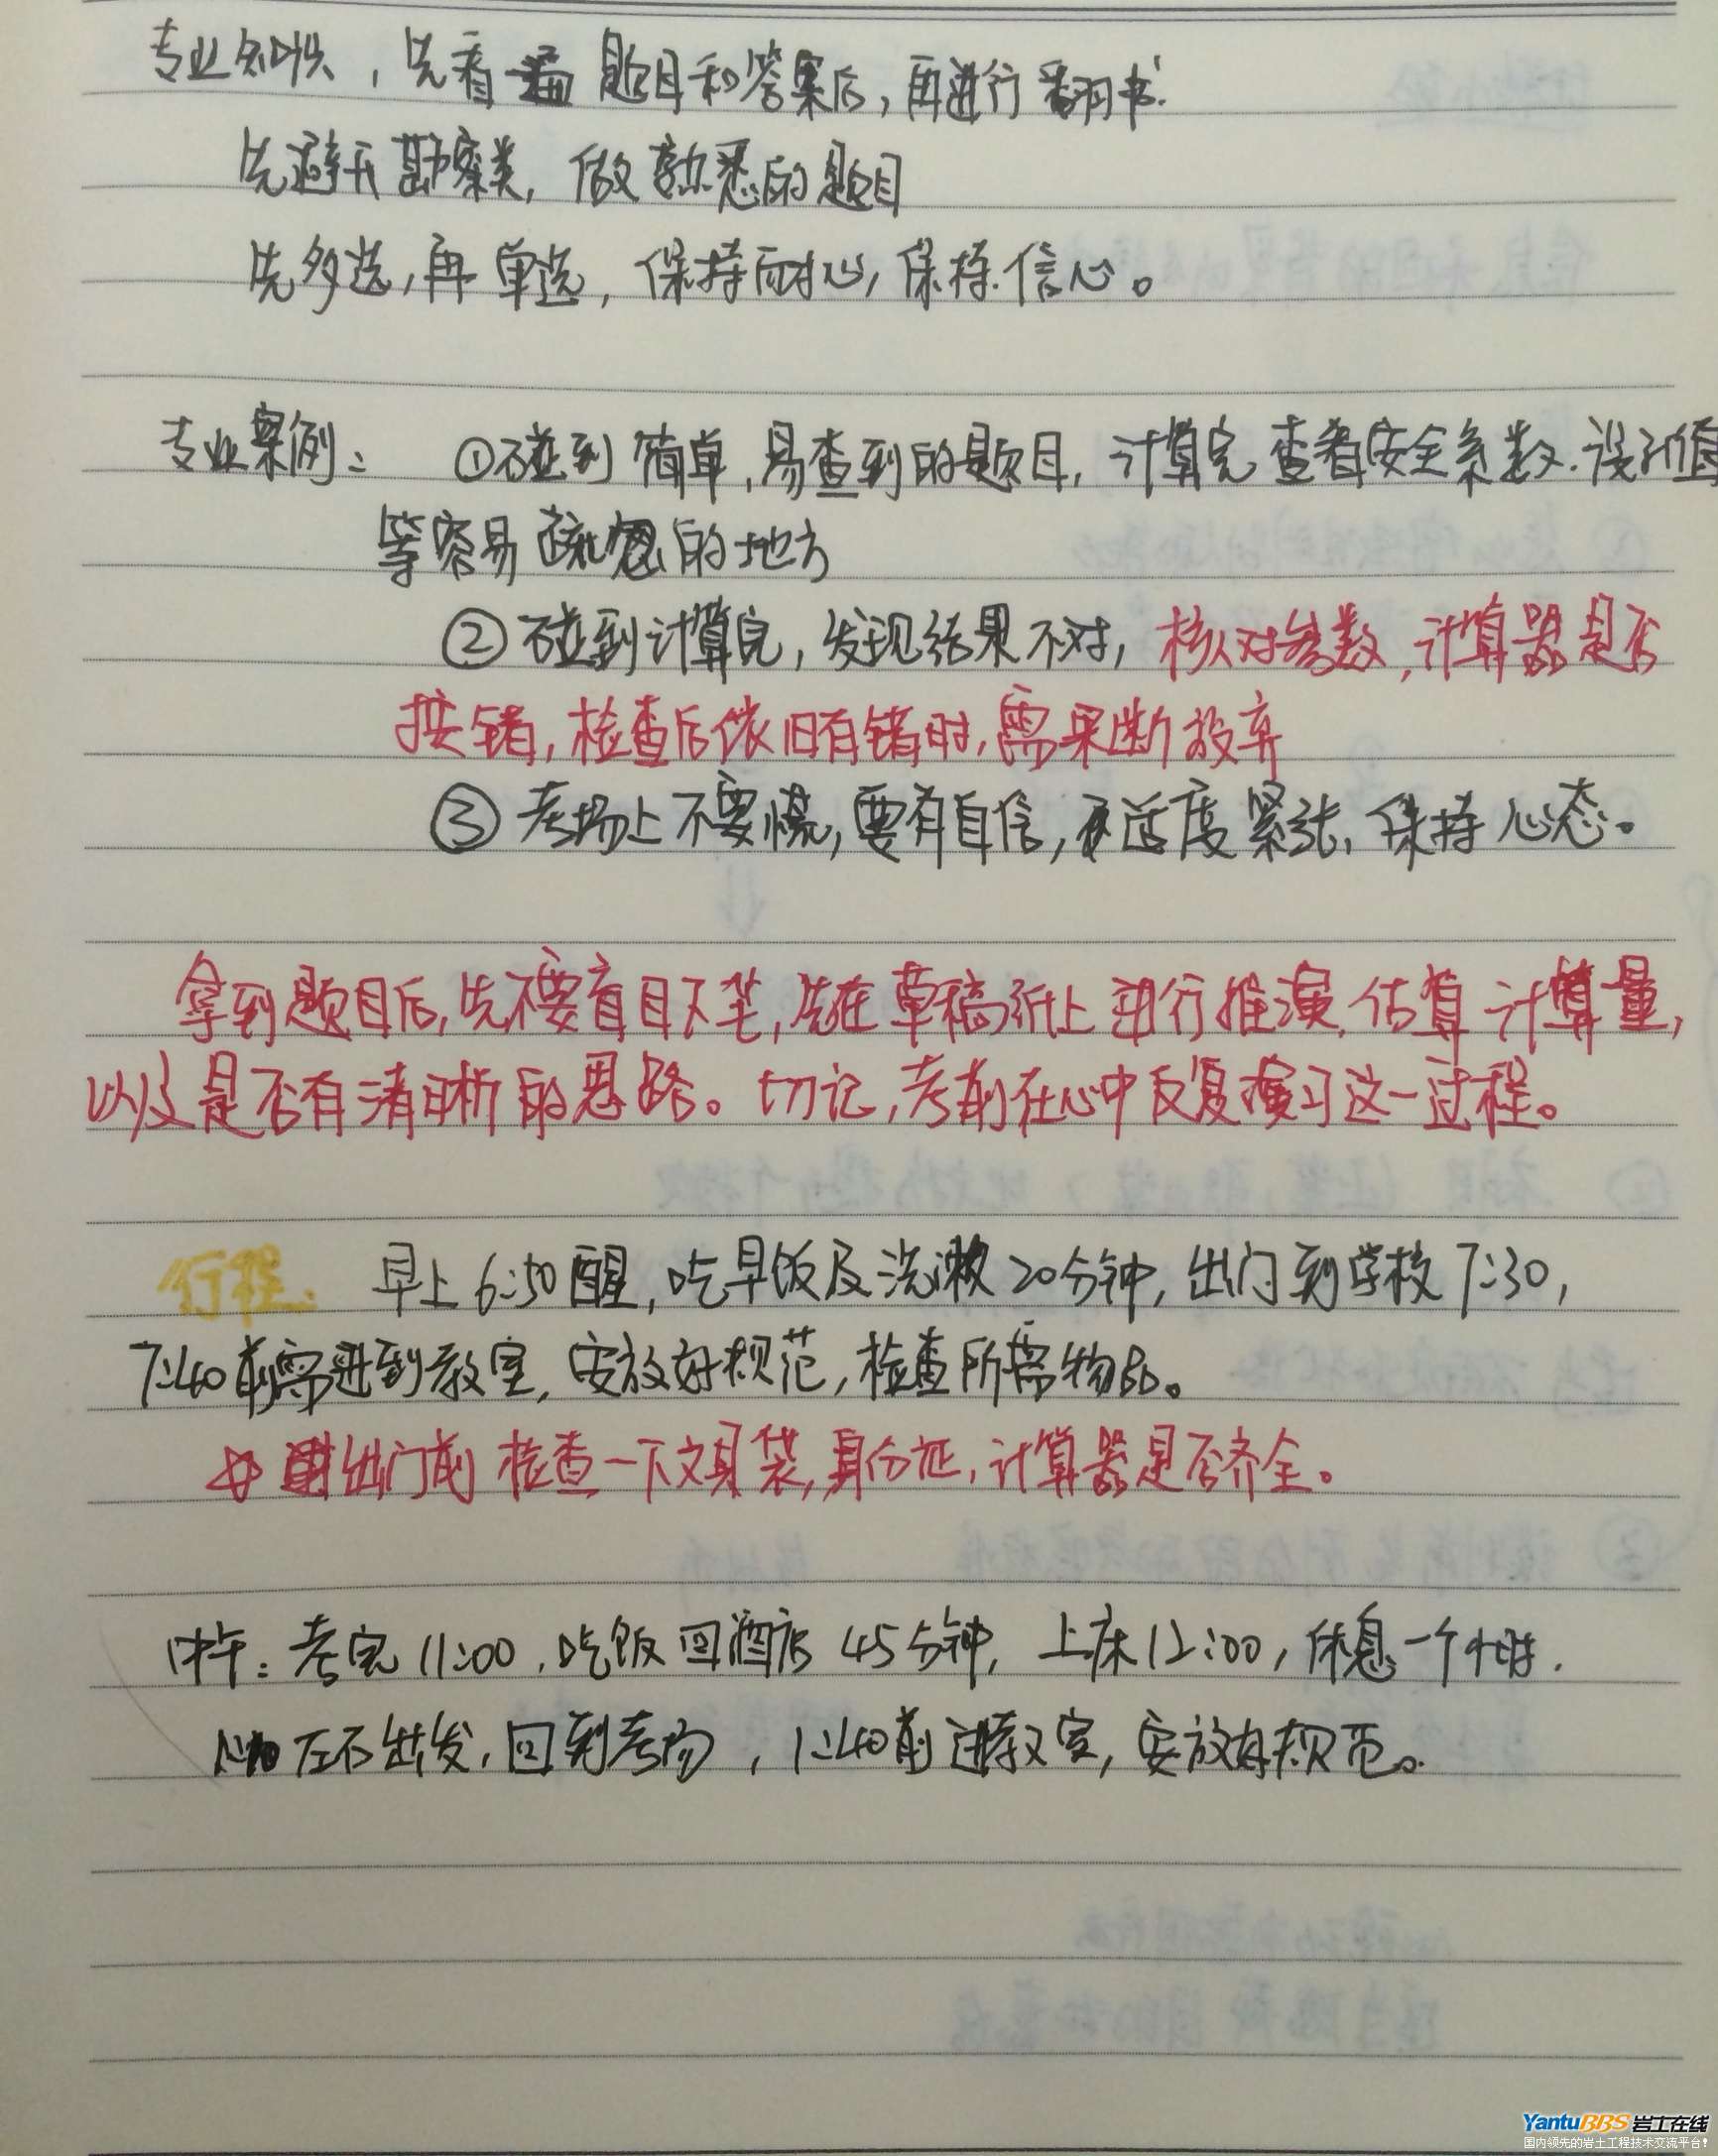 专业知识，先看一遍题目和答案后，再进行翻书.
先避开勘察类，做熟悉的题目
先多选，再单选，保持耐心，保持信心。
专业案例： ①碰到简单，易查到的题目，计算完查看安全系数.设计值
等容易疏忽的地方
②碰到计算完，发现结果不对，核对参数，计算器是否
按错，检查后依旧有错时，需果断放弃
③考场上不要慌，要有自信，适度紧张，保持心态。
拿到题目后，先不要盲目下笔，先在草稿纸上进行推演，估算计算量，
以及是否有清晰的思路。切记，考前在心中反复演习这一过程。
行程： 早上6:50醒，吃早饭及洗漱20分钟，出门到学校7:30，
7:40前需进到教室，安放好规范，检查所需物品。
出门前检查一下文具袋，身份证，计算器是否齐全。
中午：考完11:00，吃饭回酒店45分钟，上床12:00，休息一个小时.
左右出发，回到考场，1:40前进教室，安放好规范。
YantuBBS岩土在线
国内领先的岩土工程技术交流平台!